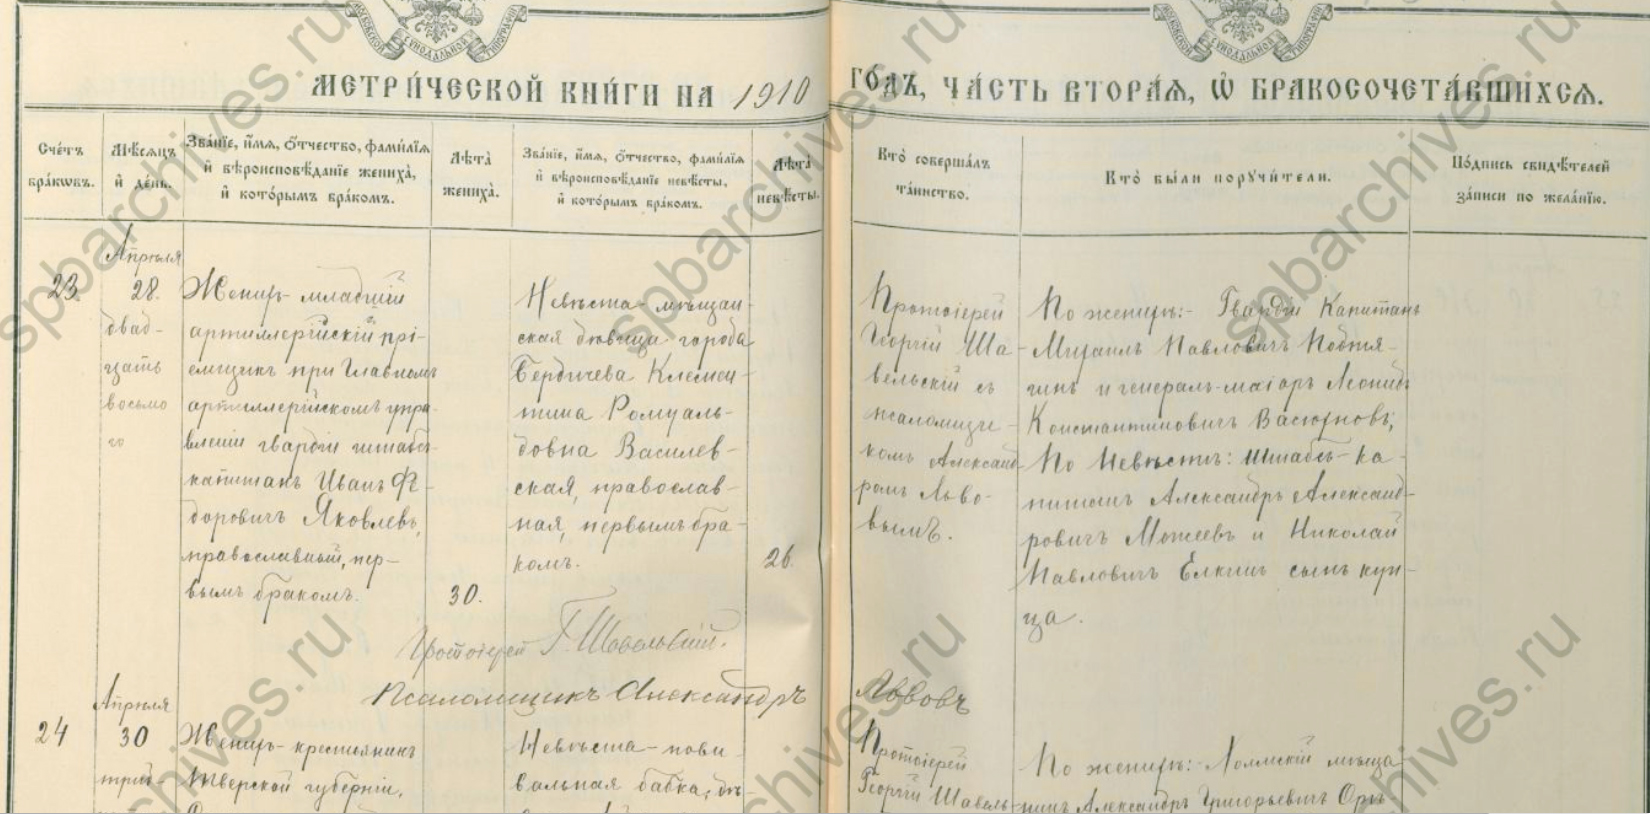 МОСКОВСКОЙ СѴНОДАЛЬНОЙ ТИПОГРАФІИ
МОСКОВСКОЙ СѴНОДАЛЬНОЙ ТИПОГРАФІИ
МЕТРИ́ЧЕСКОЙ КНИ́ГИ НА 1910
ГО́ДЪ, ЧА́СТЬ ВТОРА́Ѧ, Ѽ БРАКОСОЧЕТА́ВШИХСѦ.
Сче́тъ
бра́кѡвъ.
Мѣ́сѧцъ
и҆ де́нь.
Зва́нїе, и҆́мѧ, ѻ҆́тчество, фами́лїѧ
и҆ вѣроисповѣ́данїе жениха̀,
и҆ кото́рымъ бра́комъ.
Лѣта̀
жениха̀.
Зва́нїе, и҆́мѧ, ѻ҆́тчество, фами́лїѧ
и҆ вѣроисповѣ́данїе невѣ́сты,
и҆ кото́рымъ бра́комъ.
Лѣта̀
невѣ́сты.
Кто̀ соверша́лъ
та́инство.
Кто̀ бы́ли порꙋчи́тели.
По́дпись свидѣ́телей
за́писи по жела́нїю.
23.
Апрѣля
28.
двад-
цать
восьмо
го
Женихъ - младшій
артиллерійскій прі-
емщикъ при Главномъ
артиллерійскомъ упра-
вленіи гвардіи штабсъ-
капитанъ Иванъ Ѳе-
доровичъ Яковлевъ,
православный, пер-
вымъ бракомъ.
30.
Невѣста - мѣщан-
ская дѣвица города
Бердичева Клемен-
тина Ромуаль-
довна Василев-
ская, православ-
ная, первымъ бра-
комъ.
26.
Протоіерей
Георгій Ша-
вельскій съ
псаломщи-
комъ Александ-
ромъ Льво-
вымъ.
По женихѣ: - Гвардіи Капитанъ
Михаилъ Павловичъ Подтя-
гинъ и генералъ-маіоръ Леонидъ
Константиновичъ
По Невѣстѣ: Штабсъ-ка-
питанъ Александръ Александ-
ровичъ Можеевъ и Николай
Павловичъ Елкинъ сынъ куп-
ца.
Протоіерей Г. Шавельскій.
Псаломщикъ Александръ Львовъ
24
Апрѣля
30
трид-
Женихъ - крестьянинъ
Тверской губерніи,
Невѣста - пови-
вальная бабка, дѣ-
Протоіерей
Георгій Шавель-
По женихѣ: - Холмскій мѣща-
нинъ Александръ Григорьевичъ
spbarchives.ru
spbarchives.ru
spbarchives.ru
spbarchives.ru
chives.ru
chives.ru
chives.ru